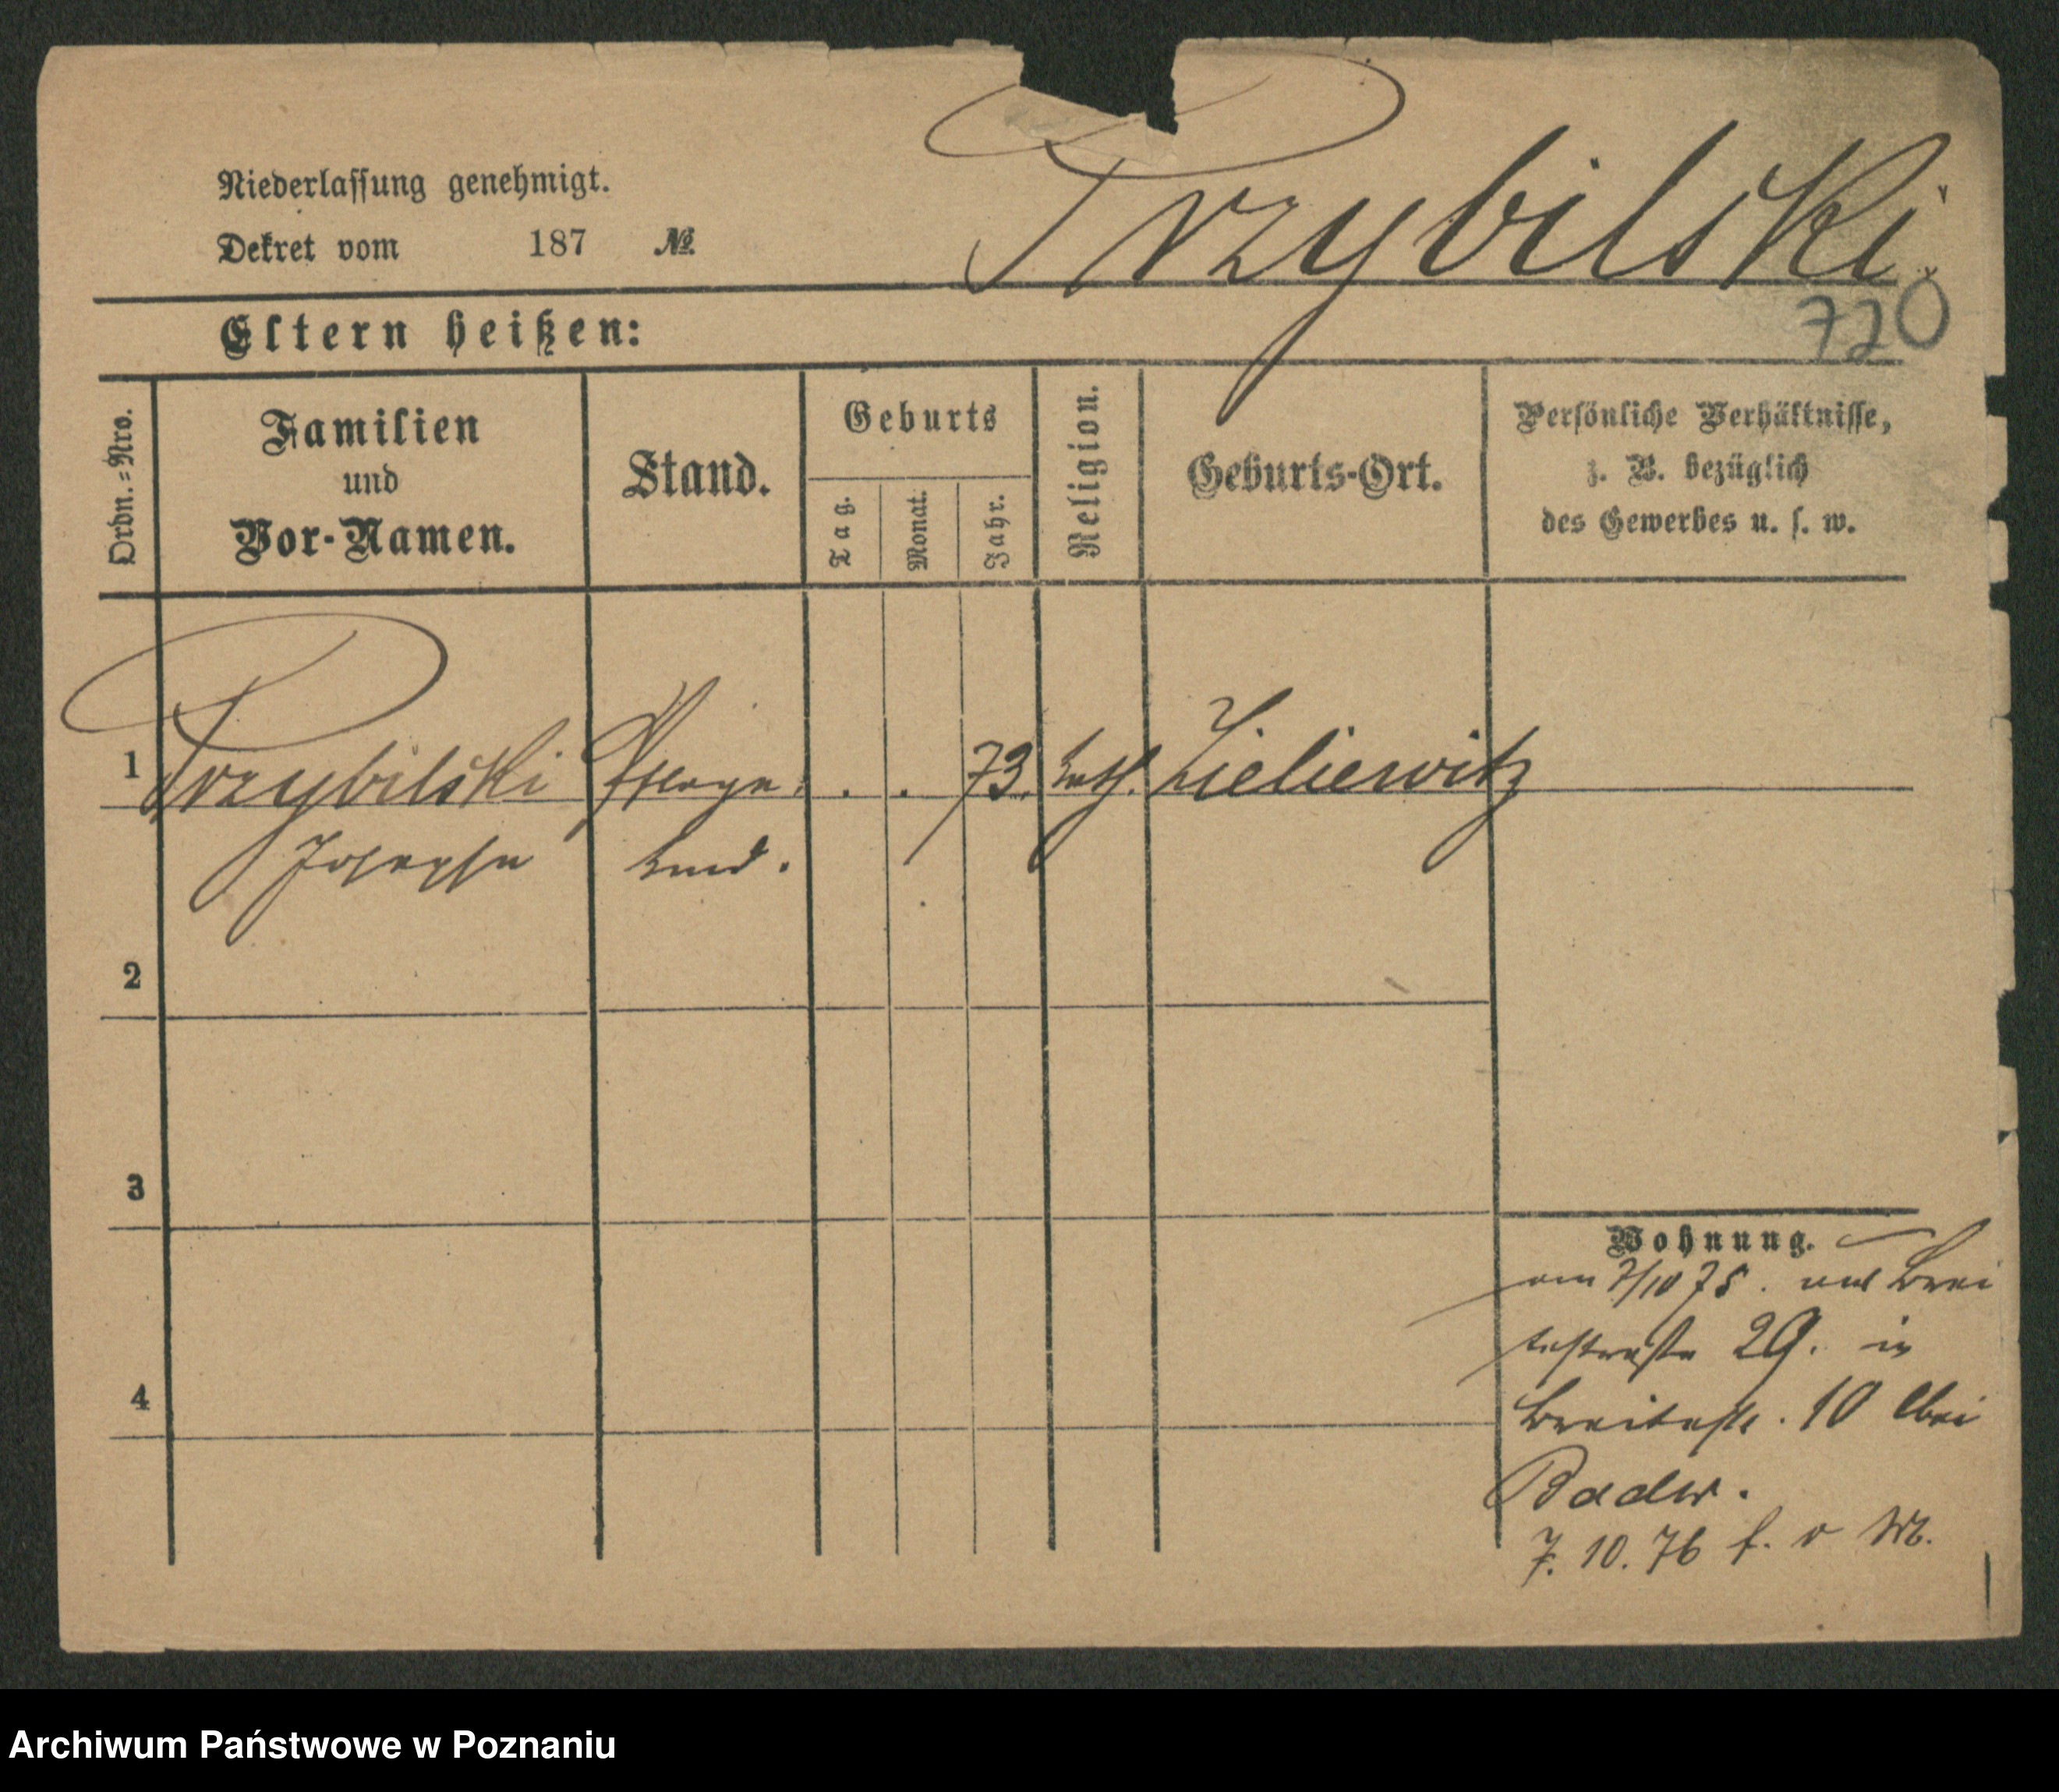 Przybilski.
Niederlassung genehmigt.
Dekret vom 187 №
720
Eltern heißen:
Ordn.=Nro.
Familien
und
Vor-Namen.
Stand.
Geburts
Tag.
Monat.
Jahr.
Religion.
Geburts-Ort.
Persönliche Verhältnisse,
z. B. bezüglich
des Gewerbes u. s. w.
1 Przybilski Pflege . . 73. kath. Zieliewitz
Josepha kind.
2
3
4
Wohnung.
am 7/10 75. aus Brei
testraße 29. in
Breitestr. 10 bei
7. 10. 76 f. v M.
Archiwum Państwowe w Poznaniu